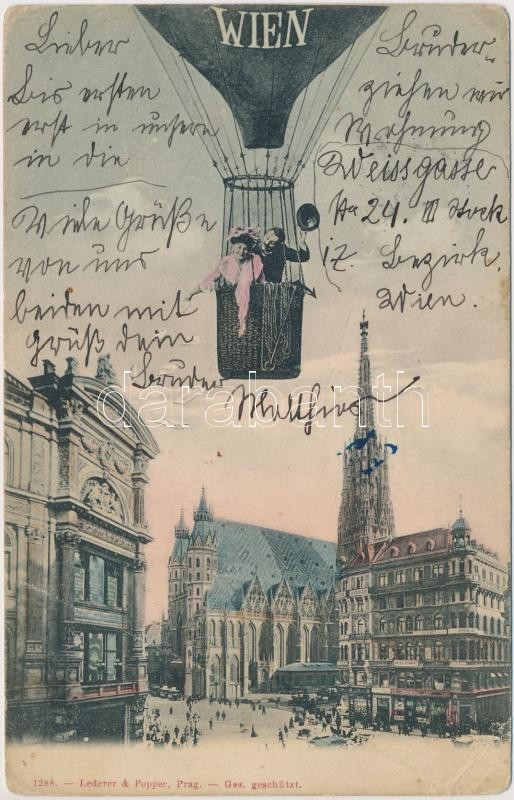 WIEN
Lieber Bruder
bis ersten ziehen wir
erst in unsere Wohnung
in die Weissgasse
Nr 24. III Stock
17. Bezirk.
Wien.
Viele Grüße
von uns
beiden mit
grüß dein
Bruder
Mathias
darabanth.com
1288. — Lederer & Popper, Prag. — Ges. geschützt.